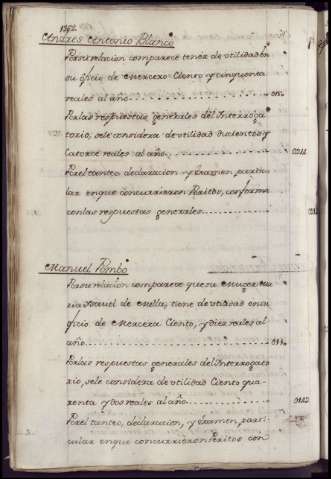 1292.
Andres Antonio Blanco
Por su relacion comparece tener de utilidad en
su oficio de Mercero Ciento y cinquenta
reales al año
Por las respuestas generales del Interroga
torio, se le considera de utilidad ducientos y
Catorce reales al año 0214
Por el tanteo, declaracion y examen particu
lar en que concurrieron Peritos, conforma
con las respuestas generales
Manuel Pombo
Por su relacion comparece que su Muger Ma
ria Manuel de Mella, tiene de utilidad en su
oficio de Mercera Ciento, y diez reales al
año 0110
Por las respuestas generales del Interrogato
rio, se le considera de utilidad Ciento qua
renta y dos reales al año 0142
Por el tanteo, declaracion, y examen, parti
cular en que concurrieron Peritos con